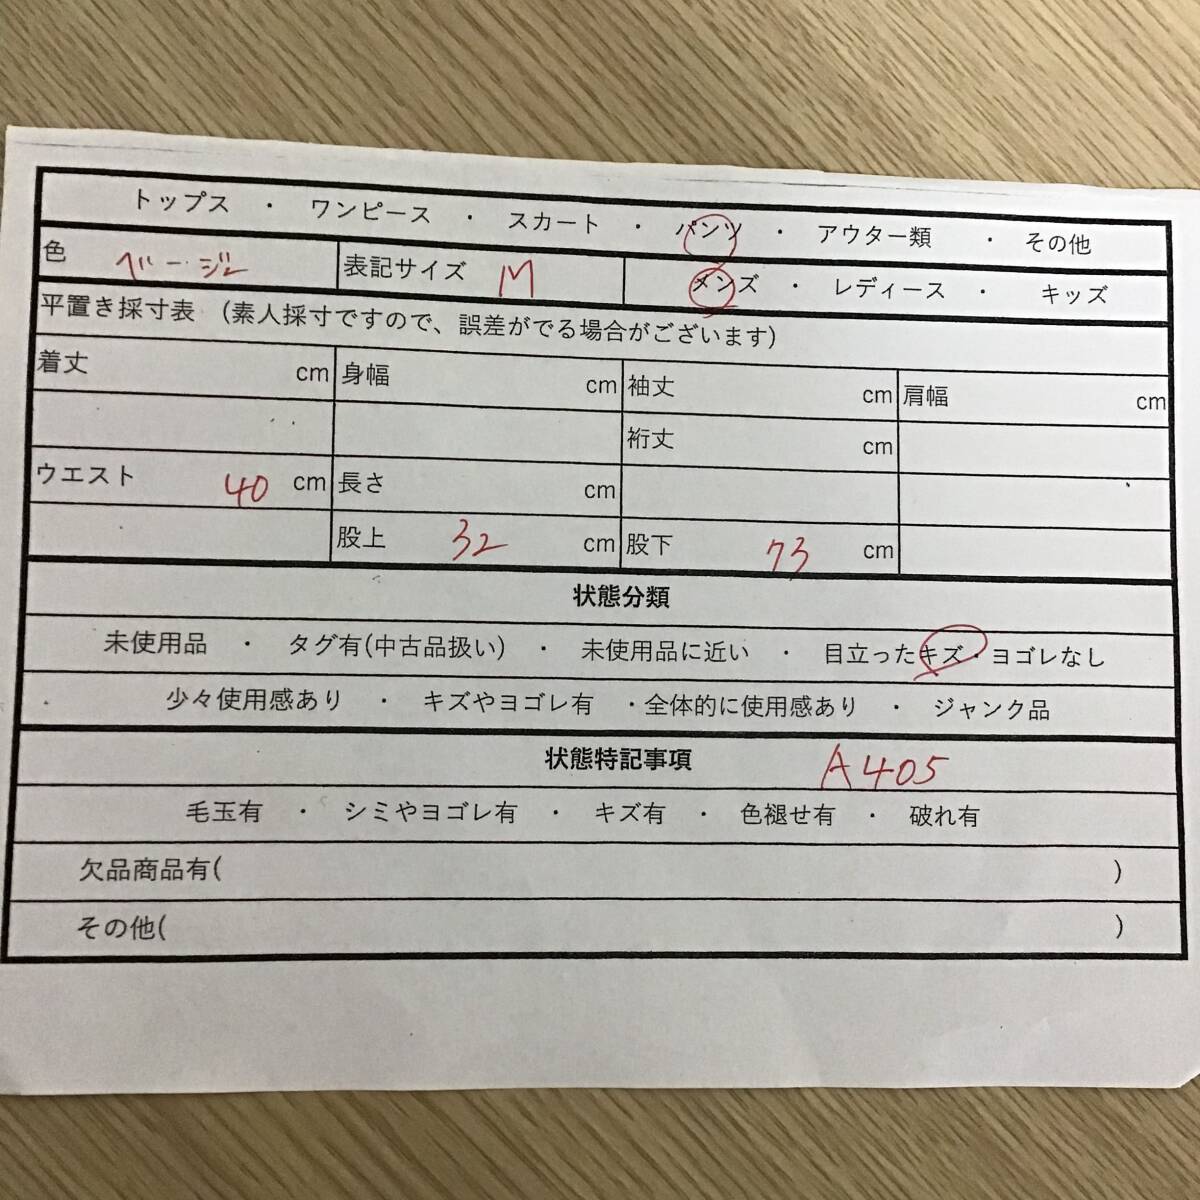 トップス ・ ワンピース ・ スカート ・ パンツ ・ アウター類 ・ その他
色 ベージュ 表記サイズ M メンズ ・ レディース ・ キッズ
平置き採寸表 (素人採寸ですので、誤差がでる場合がございます)
着丈 cm 身幅 cm 袖丈 cm 肩幅 cm
裄丈 cm
ウエスト 40 cm 長さ cm
股上 32 cm 股下 73 cm
状態分類
未使用品 ・ タグ有(中古品扱い) ・ 未使用品に近い ・ 目立ったキズ・ヨゴレなし
少々使用感あり ・ キズやヨゴレ有 ・全体的に使用感あり ・ ジャンク品
状態特記事項 A405
毛玉有 ・ シミやヨゴレ有 ・ キズ有 ・ 色褪せ有 ・ 破れ有
欠品商品有( )
その他( )